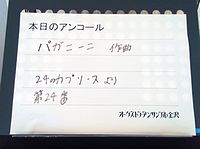 本日のアンコール
パガニーニ 作曲
24のカプリース より
第24番
オーケストラ・アンサンブル金沢